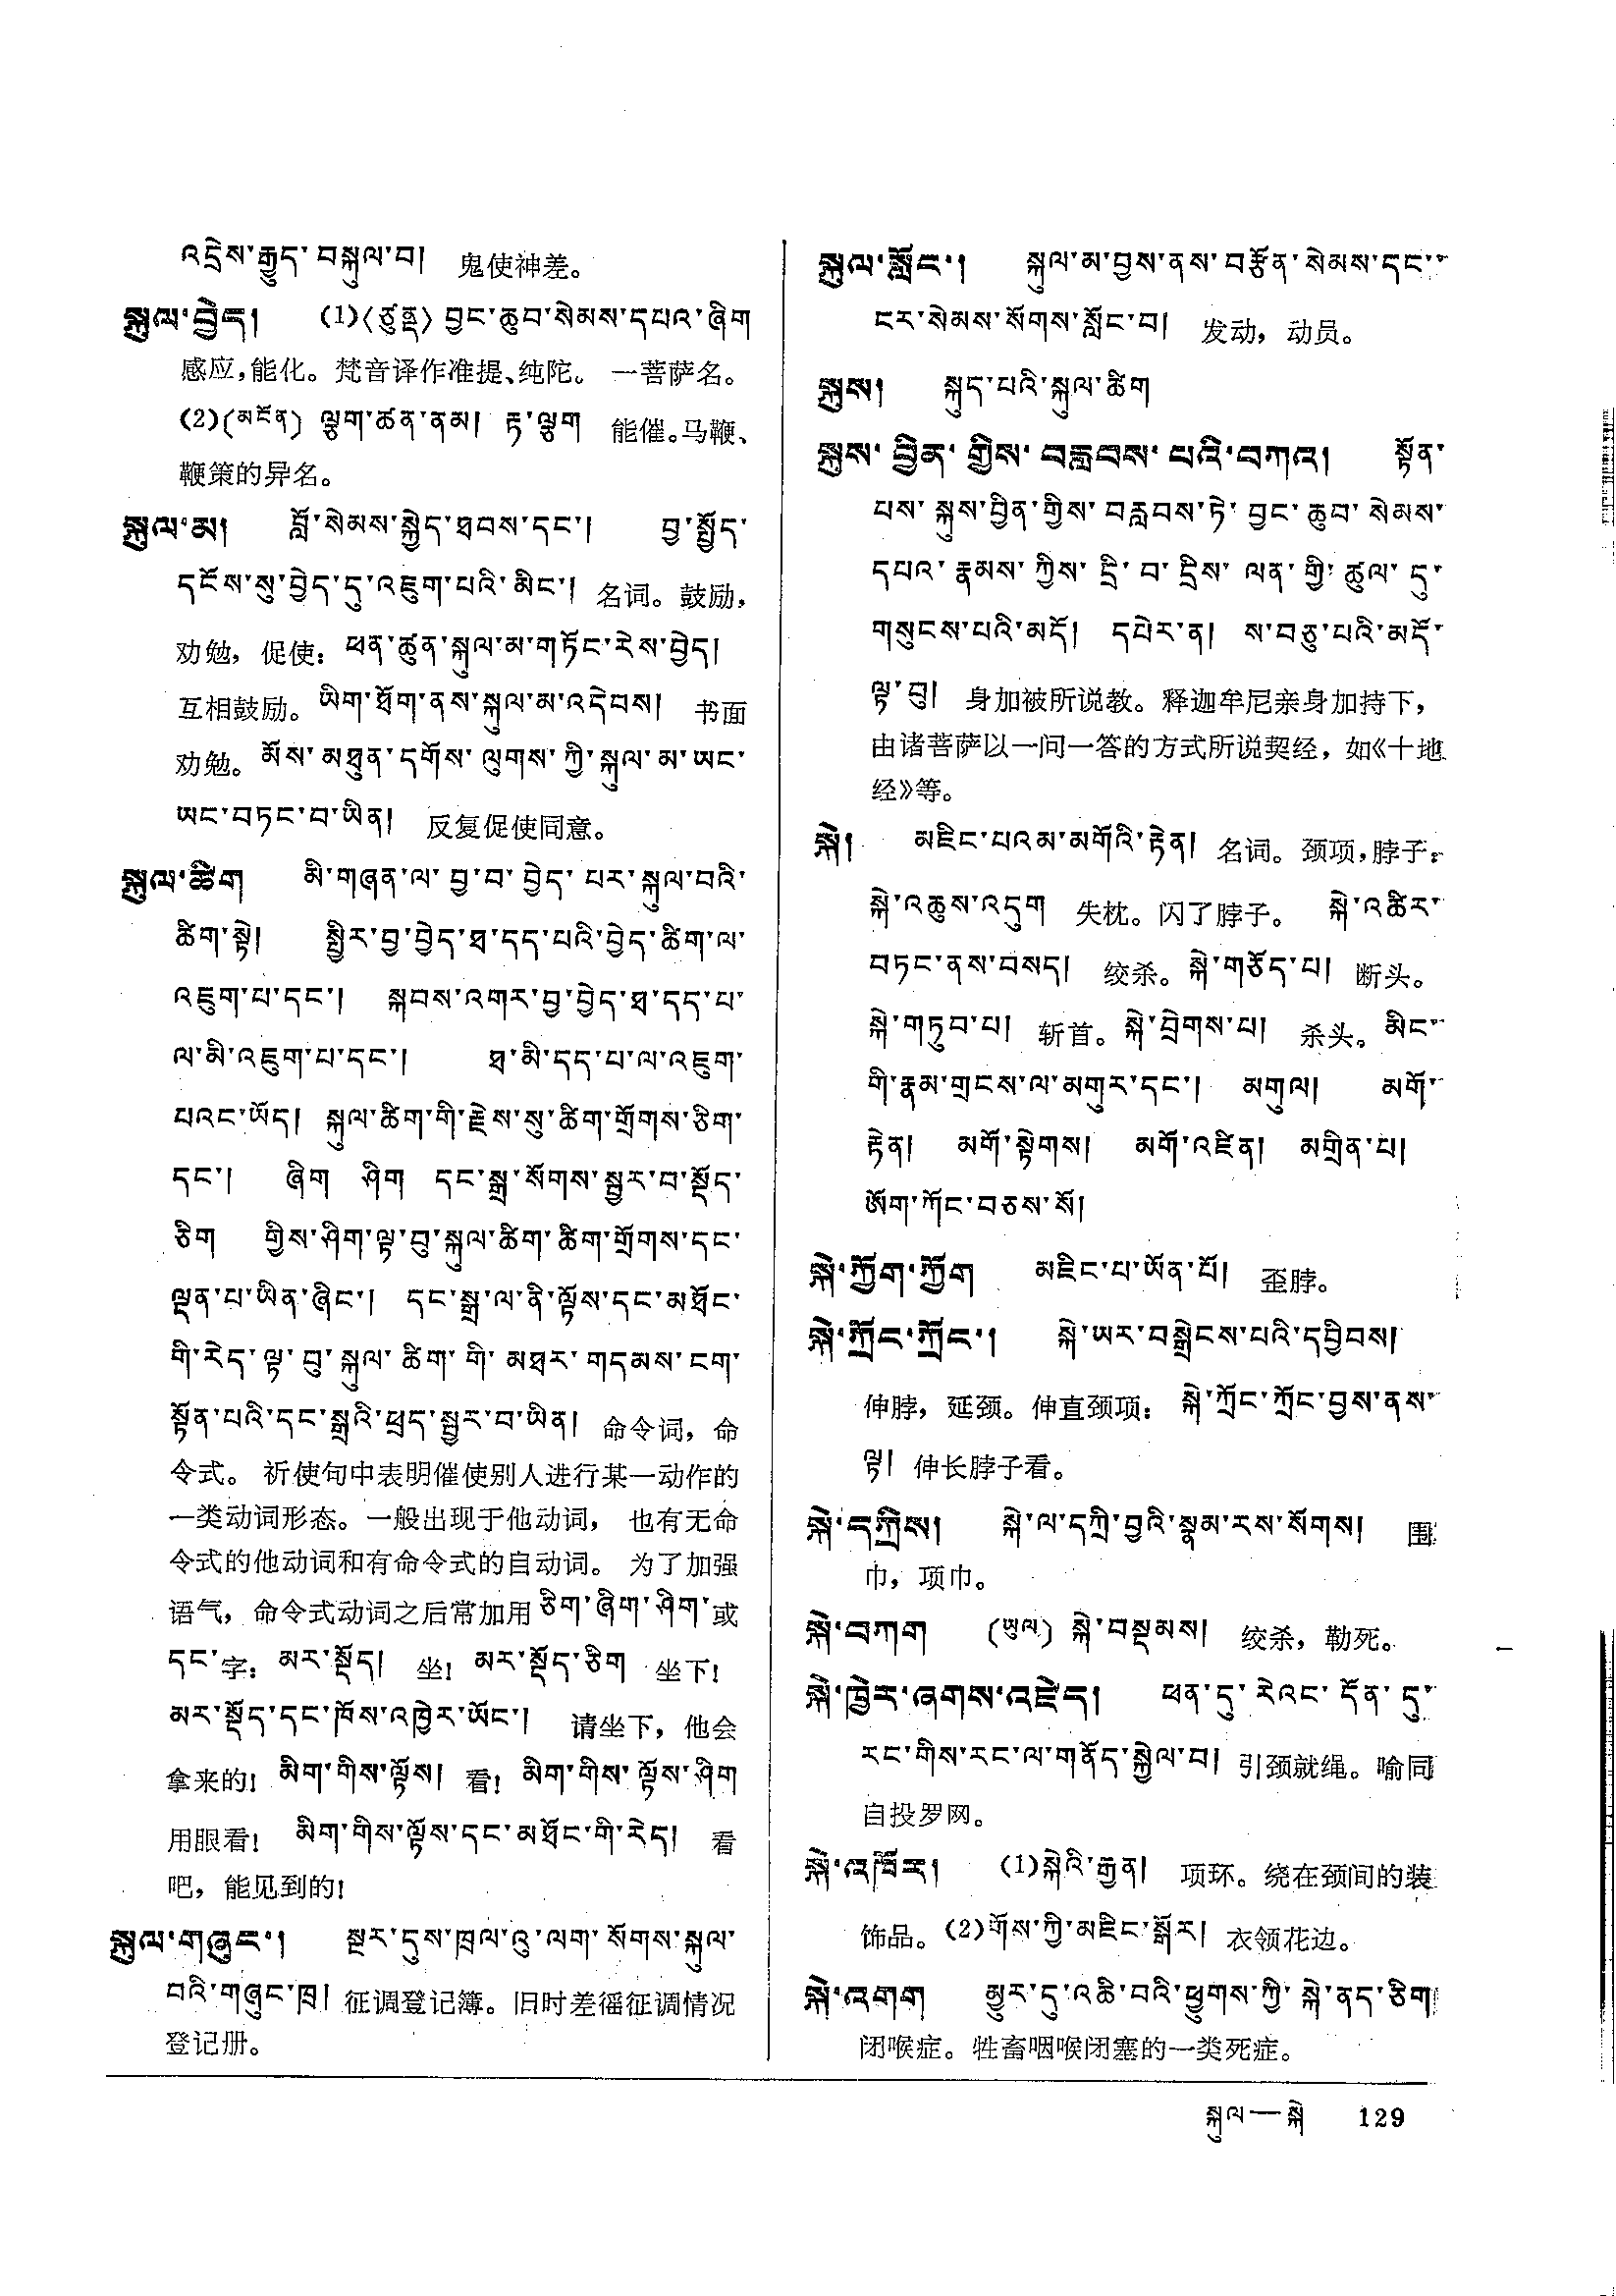 འདྲེས་རྒྱུད་བསྐུལ་བ། 鬼使神差。
སྐུལ་བྱེད། (1)〈ཙུནྡ〉བྱང་ཆུབ་སེམས་དཔའ་ཞིག
感应,能化。梵音译作准提、纯陀。 一菩萨名。
(2)(མངོན) ལྕག་ཚན་ནམ། རྟ་ལྕག 能催。马鞭、
鞭策的异名。
སྐུལ་མ། བློ་སེམས་སྐྱེད་ཐབས་དང་། བྱ་སྤྱོད་
དངོས་སུ་བྱེད་དུ་འཇུག་པའི་མིང་། 名词。鼓励,
劝勉, 促使: ཕན་ཚུན་སྐུལ་མ་གཏོང་རེས་བྱེད།
互相鼓励。ཡིག་ཐོག་ནས་སྐུལ་མ་འདེབས། 书面
劝勉。མོས་མཐུན་དགོས་ལུགས་ཀྱི་སྐུལ་མ་ཡང་
ཡང་བཏང་བ་ཡིན། 反复促使同意。
སྐུལ་ཚིག མི་གཞན་ལ་བྱ་བ་བྱེད་པར་སྐུལ་བའི་
ཚིག་སྟེ། སྤྱིར་བྱ་བྱེད་ཐ་དད་པའི་བྱེད་ཚིག་ལ་
འཇུག་པ་དང་། སྐབས་འགར་བྱ་བྱེད་ཐ་དད་པ་
ལ་མི་འཇུག་པ་དང་། ཐ་མི་དད་པ་ལ་འཇུག་
པའང་ཡོད། སྐུལ་ཚིག་གི་རྗེས་སུ་ཚིག་གྲོགས་ཅིག་
དང་། ཞིག ཤིག དང་སྒྲ་སོགས་སྦྱར་བ་སྡོད་
ཅིག གྱིས་ཤིག་ལྟ་བུ་སྐུལ་ཚིག་ཚིག་གྲོགས་དང་
ལྡན་པ་ཡིན་ཞིང་། དང་སྒྲ་ལ་ནི་ལྟོས་དང་མཐོང་
གི་རེད་ལྟ་བུ་སྐུལ་ཚིག་གི་མཐར་གདམས་ངག་
སྟོན་པའི་དང་སྒྲའི་ཕྲད་སྦྱར་བ་ཡིན། 命令词, 命
令式。 祈使句中表明催使别人进行某一动作的
一类动词形态。一般出现于他动词, 也有无命
令式的他动词和有命令式的自动词。 为了加强
语气, 命令式动词之后常加用 ཅིག་ཞིག་ཤིག་或
དང་字: མར་སྡོད། 坐! མར་སྡོད་ཅིག 坐下!
མར་སྡོད་དང་ཁོས་འཁྱེར་ཡོང་། 请坐下, 他会
拿来的! མིག་གིས་ལྟོས། 看! མིག་གིས་ལྟོས་ཤིག
用眼看! མིག་གིས་ལྟོས་དང་མཐོང་གི་རེད། 看
吧, 能见到的!
སྐུལ་གཞུང་། སྔར་དུས་ཁྲལ་འུ་ལག་སོགས་སྐུལ་
བའི་གཞུང་ཁྲ། 征调登记簿。旧时差徭征调情况
登记册。
སྐུལ་སློང་། སྐུལ་མ་བྱས་ནས་བརྩོན་སེམས་དང་
ངར་སེམས་སོགས་སློང་བ། 发动, 动员。
སྐུས། སྐུད་པའི་སྐུལ་ཚིག
སྐུས་བྱིན་གྱིས་བརླབས་པའི་བཀའ། སྟོན་
པས་སྐུས་བྱིན་གྱིས་བརླབས་ཏེ་བྱང་ཆུབ་སེམས་
དཔའ་རྣམས་ཀྱིས་དྲི་བ་དྲིས་ལན་གྱི་ཚུལ་དུ་
གསུངས་པའི་མདོ། དཔེར་ན། ས་བཅུ་པའི་མདོ་
ལྟ་བུ། 身加被所说教。释迦牟尼亲身加持下,
由诸菩萨以一问一答的方式所说契经, 如《十地
经》等。
སྐེ། མཇིང་པའམ་མགོའི་རྟེན། 名词。颈项,脖子:
སྐེ་འཆུས་འདུག 失枕。闪了脖子。 སྐེ་འཚིར་
བཏང་ནས་བསད། 绞杀。སྐེ་གཅོད་པ། 断头。
སྐེ་གཏུབ་པ། 斩首。སྐེ་བྲེགས་པ། 杀头。མིང་
གི་རྣམ་གྲངས་ལ་མགུར་དང་། མགུལ། མགོ་
རྟེན། མགོ་སྟེགས། མགོ་འཛིན། མགྲིན་པ།
ཨོག་ཀོང་བཅས་སོ།
སྐེ་ཀྱོག་ཀྱོག མཇིང་པ་ཡོན་པོ། 歪脖。
སྐེ་ཀྲོང་ཀྲོང་། སྐེ་ཡར་བསྒྲེངས་པའི་དབྱིབས།
伸脖, 延颈。伸直颈项: སྐེ་ཀྲོང་ཀྲོང་བྱས་ནས་
ལྟ། 伸长脖子看。
སྐེ་དཀྲིས། སྐེ་ལ་དཀྲི་བྱའི་སྣམ་རས་སོགས། 围
巾, 项巾。
སྐེ་བཀག (ཡུལ) སྐེ་བསྡམས། 绞杀, 勒死。
སྐེ་ཁྱེར་ཞགས་འཛེད། ཕན་དུ་རེའང་དོན་དུ་
རང་གིས་རང་ལ་གནོད་སྐྱེལ་བ། 引颈就绳。喻同
自投罗网。
སྐེ་འཁོར། (1)སྐེའི་རྒྱན། 项环。绕在颈间的装
饰品。(2)གོས་ཀྱི་མཇིང་སྒོར། 衣领花边。
སྐེ་འགག མྱུར་དུ་འཆི་བའི་ཕྱུགས་ཀྱི་སྐེ་ནད་ཅིག
闭喉症。牲畜咽喉闭塞的一类死症。
སྐུལ—སྐེ 129